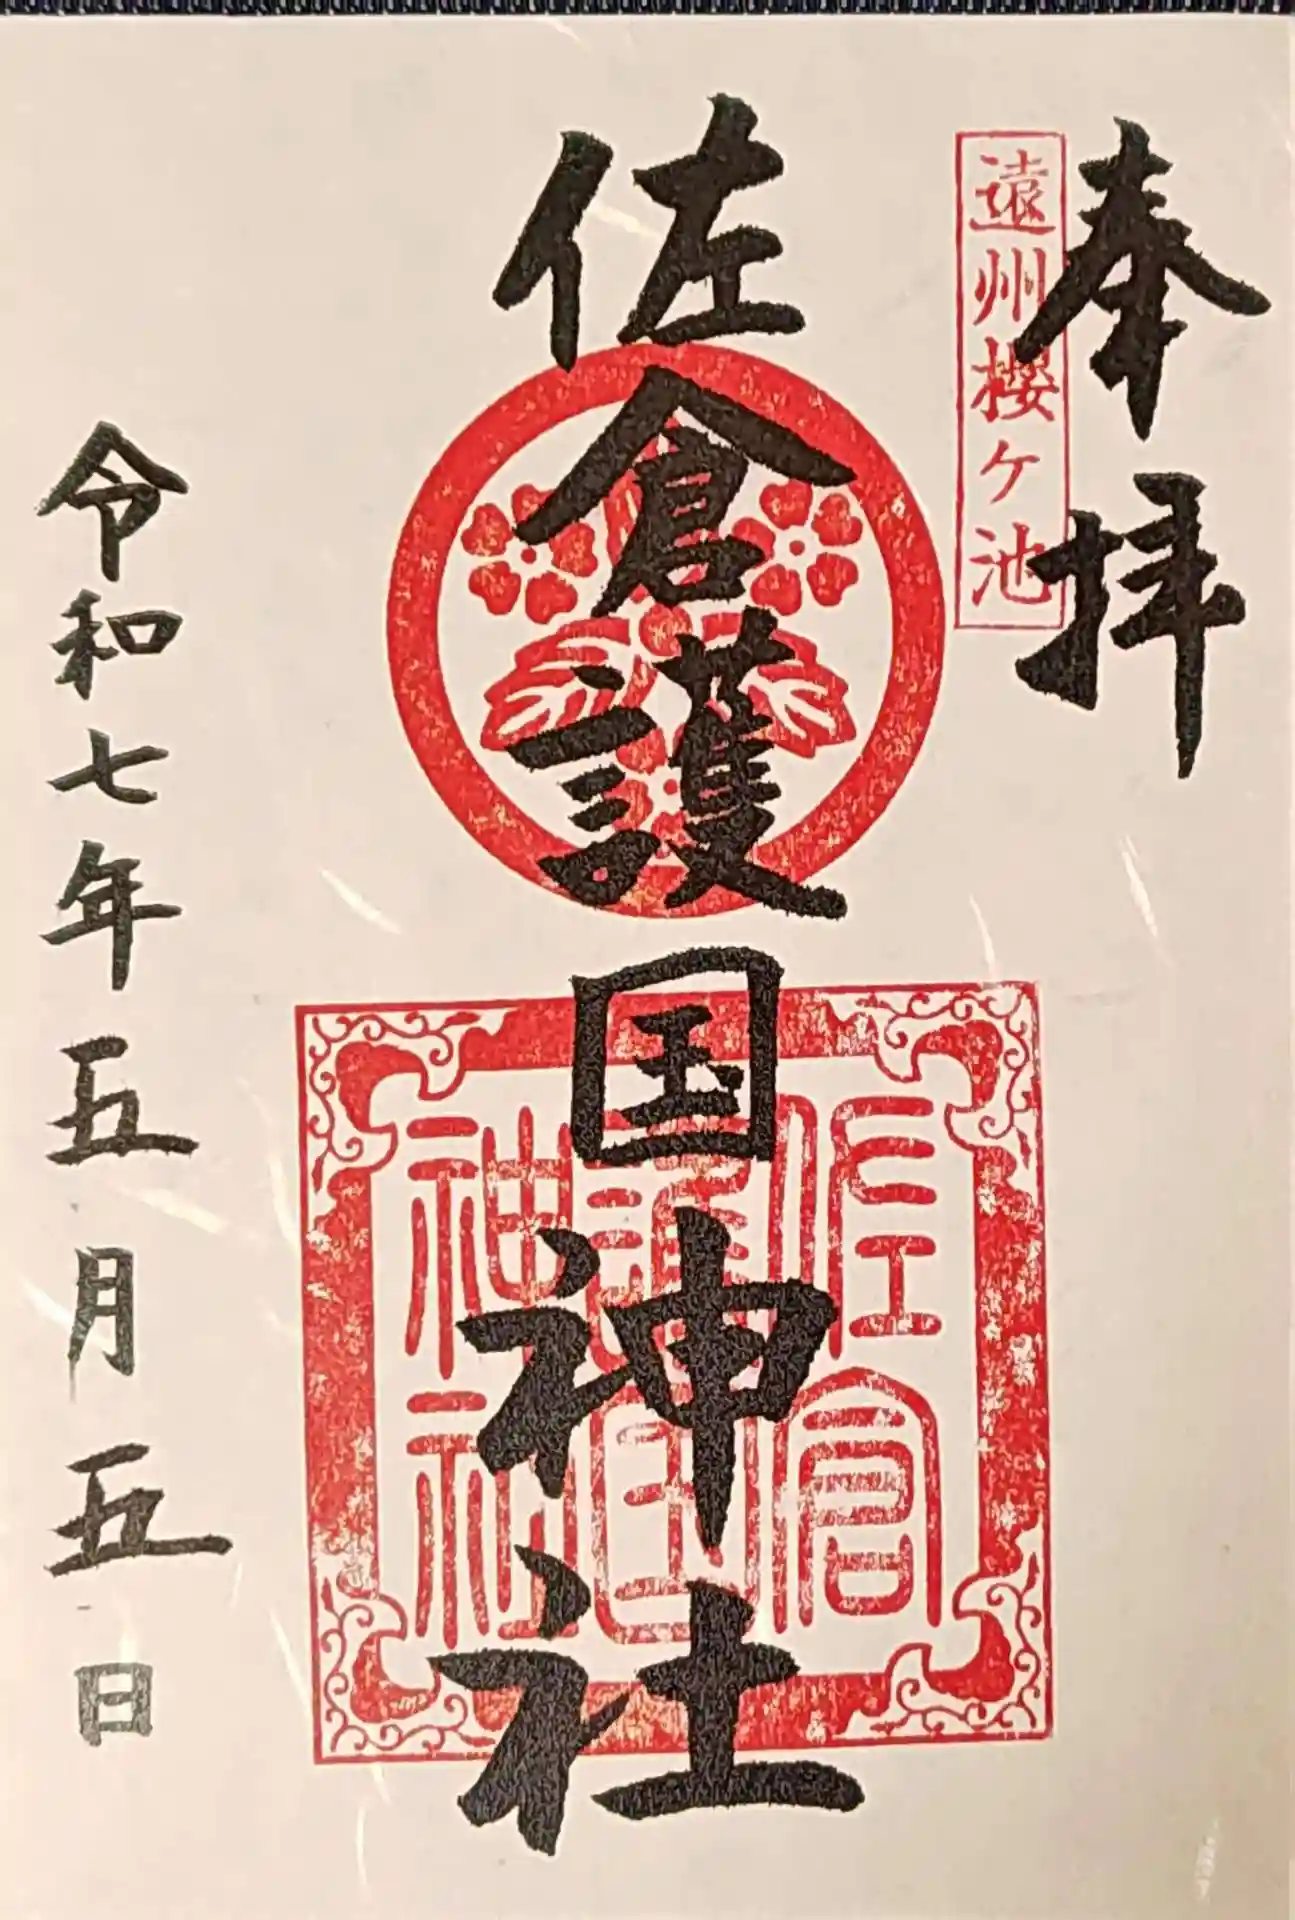 奉拝
遠州櫻ケ池
佐倉護国神社
佐倉
護国
神社
令和七年五月五日